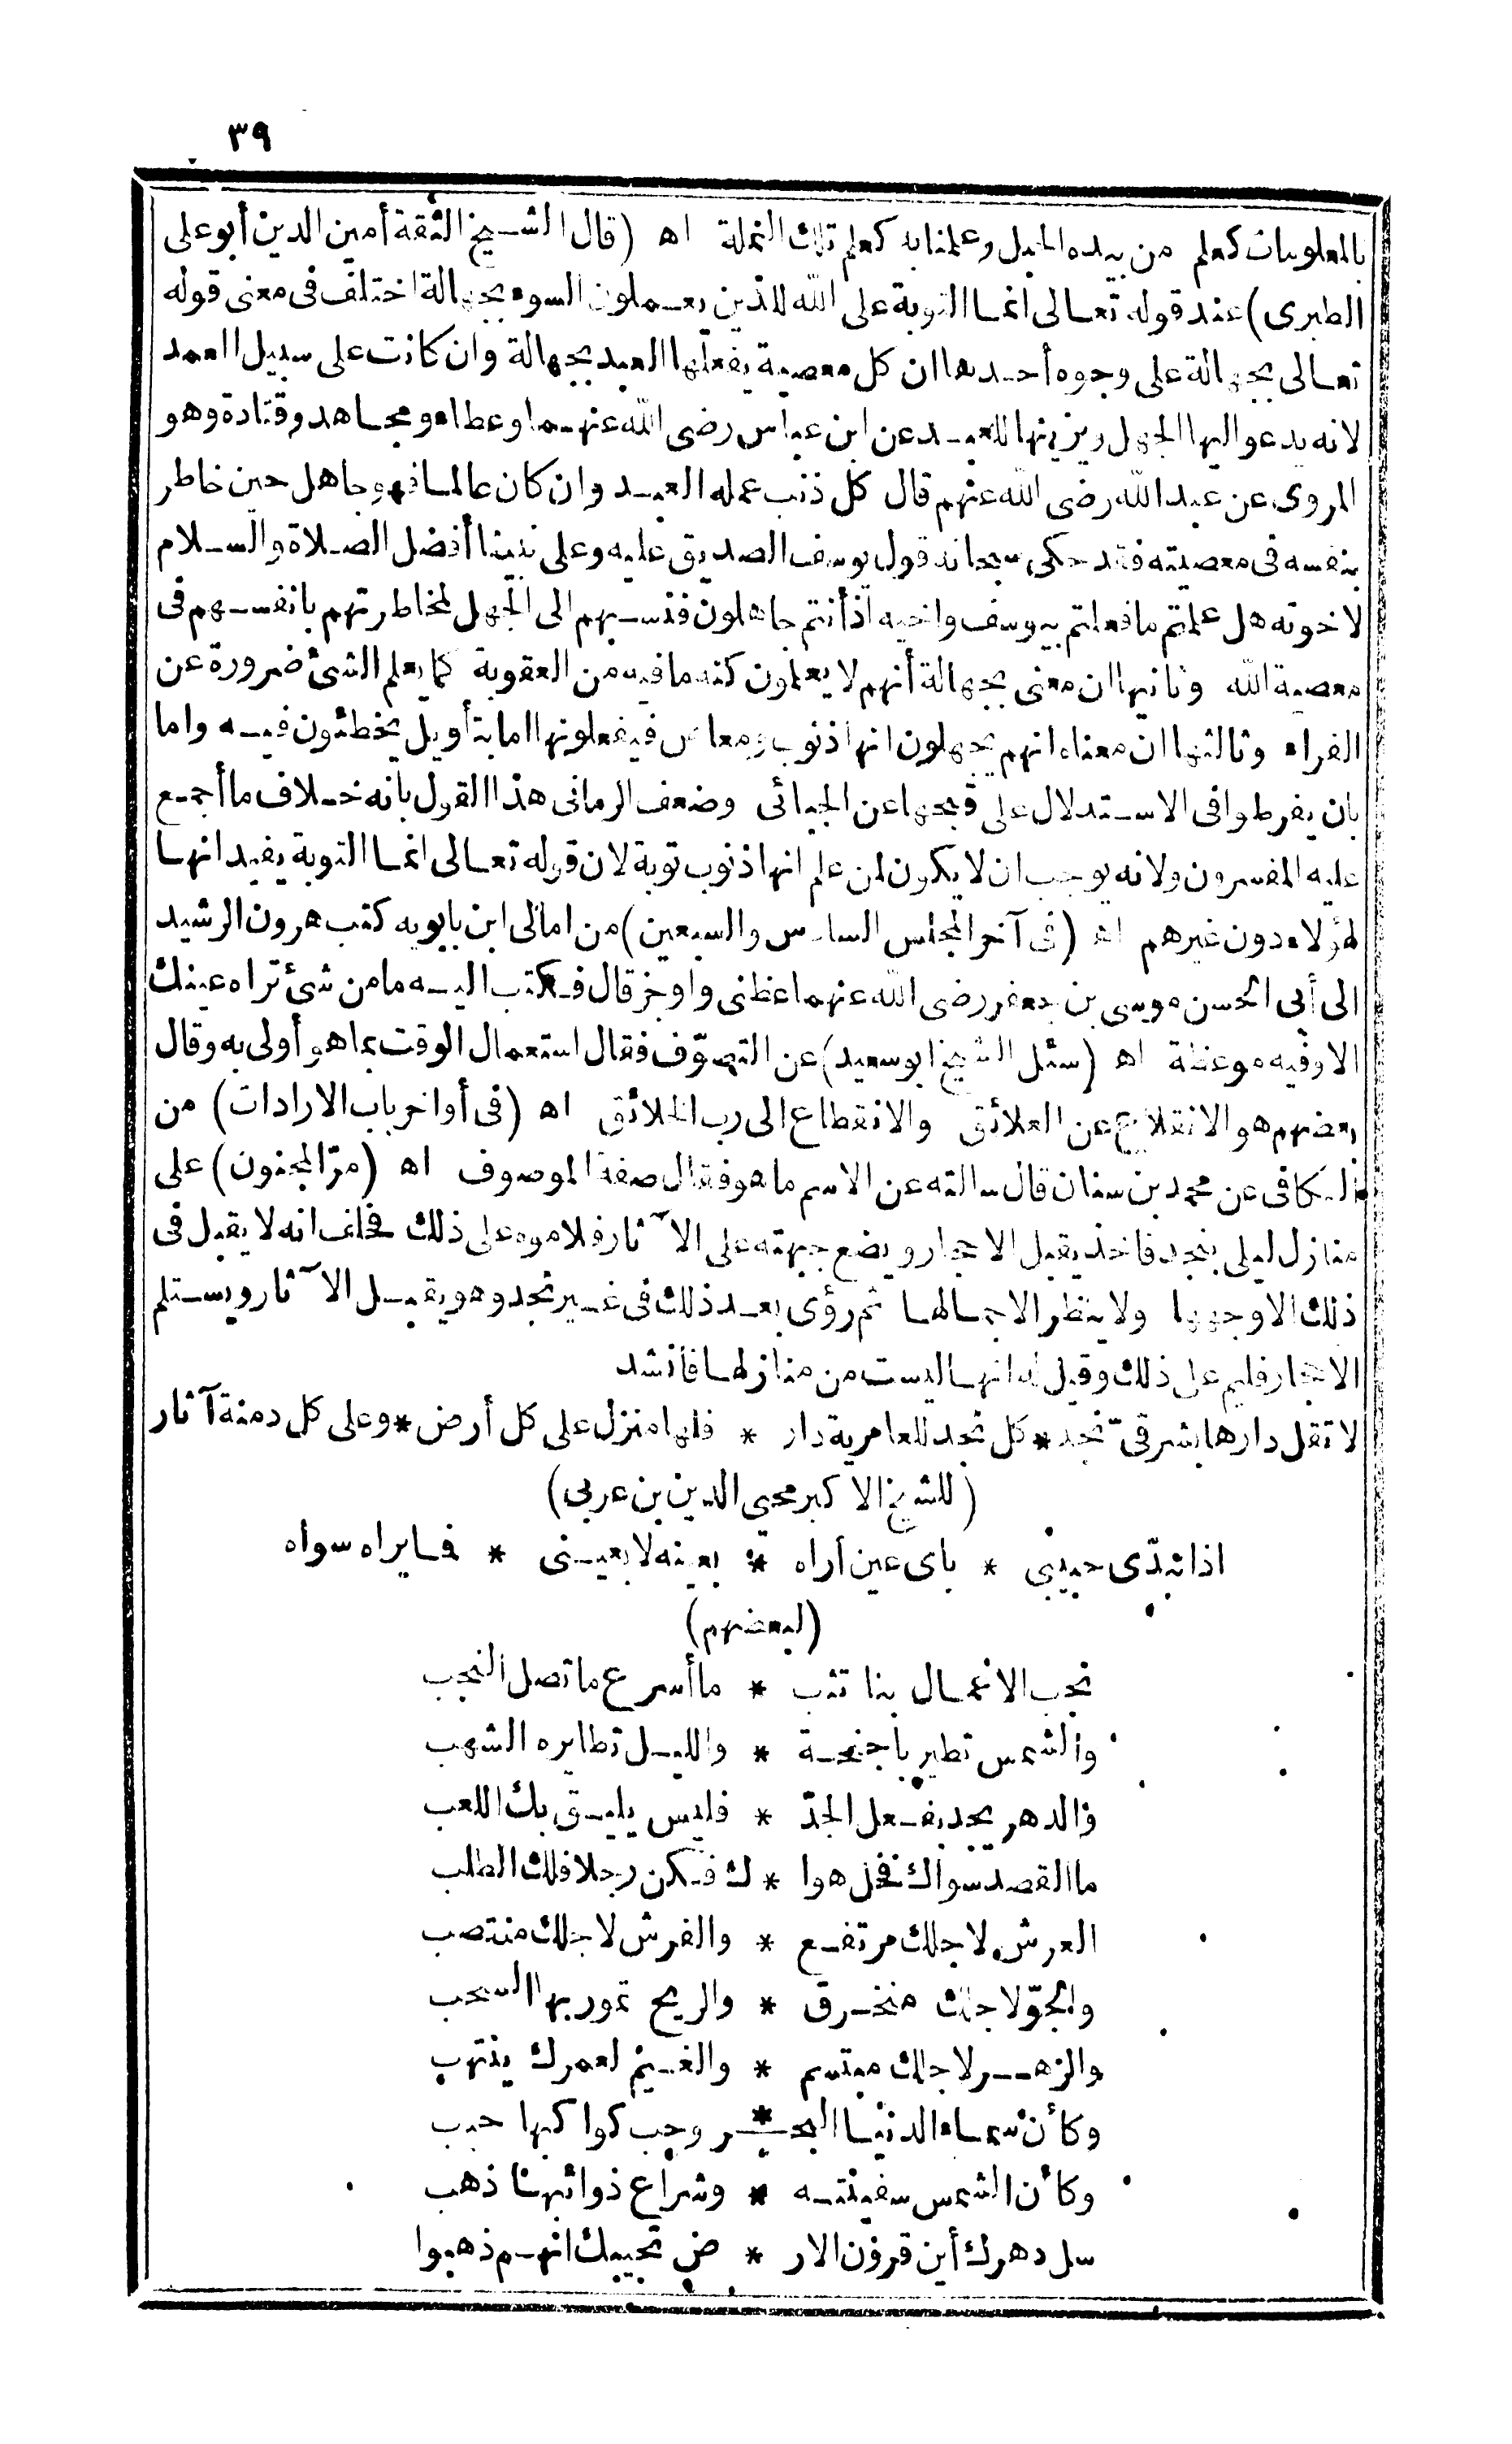 ٣٩
بالمعلومات كعلم من بيده الحبل وعلمنابه كعلم تلك النملة اه (قال الشيخ الثقة أمين الدين أبو على
الطبرى) عند قوله تعالى انما التوبة على الله للذين يعملون السوء بجهالة اختلف فى معنى قوله
تعالى بجهالة على وجوه أحدها ان كل معصية يفعلها العبد بجهالة وان كانت على سبيل العمد
لانه يدعو اليها الجهل ويزينها للعبد عن ابن عباس رضى الله عنهما وعطاء ومجاهد وقتادة وهو
المروى عن عبد الله رضى الله عنهم قال كل ذنب عمله العبد وان كان عالما فهو جاهل حين خاطر
بنفسه فى معصيته فقد حكى سبحانه قول يوسف الصديق عليه وعلى نبينا أفضل الصلاة والسلام
لاخوته هل علمتم ما فعلتم بيوسف واخيه اذ أنتم جاهلون فنسبهم الى الجهل لمخاطرتهم بانفسهم فى
معصية الله وثانيها ان معنى بجهالة أنهم لا يعلمون كنه ما فيه من العقوبة كما يعلم الشئ ضرورة عن
الفراء وثالثها ان معناه انهم يجهلون انها ذنوب ومعاص فيفعلونها اما بتأويل يخطئون فيه واما
بان يفرطوا فى الاستدلال على قبحها عن الجبائى وضعف الرمانى هذا القول بانه خلاف ما أجمع
عليه المفسرون ولانه يوجب ان لا يكون لمن علم انها ذنوب توبة لان قوله تعالى انما التوبة يفيد انها
لهؤلاء دون غيرهم اه (فى آخر المجلس السادس والسبعين) من امالى ابن بابويه كتب هرون الرشيد
الى أبى الحسن موسى بن جعفر رضى الله عنهما عظنى واوجز قال فكتب اليه ما من شئ تراه عينك
الا وفيه موعظة اه (سئل الشيخ ابو سعيد) عن التصوّف فقال استعمال الوقت بما هو أولى به وقال
بعضهم هو الانقلاع عن العلائق والانقطاع الى رب الخلائق اه (فى أواخر باب الارادات) من
الكافى عن محمد بن سنان قال سالته عن الاسم ما هو فقال صفة الموصوف اه (مرّ المجنون) على
منازل ليلى بنجد فاخذ يقبل الاحجار ويضع جبهته على الآثار فلاموه على ذلك فحلف انه لا يقبل فى
ذلك الا وجهها ولا ينظر الا جمالها ثم رؤى بعد ذلك فى غير نجد وهو يقبل الآثار ويستلم
الاحجار فليم على ذلك وقيل له انها ليست من منازلها فأنشد
لا تقل دارها بشرقىّ نجد * كل نجد للعامرية دار * فلها منزل على كل أرض * وعلى كل دمنة آثار
(للشيخ الاكبر محيي الدين بن عربى)
اذا تبدّى حبيبى * باى عين أراه * بعينه لا بعينى * فما يراه سواه
(لبعضهم)
نجب الاعمال بنا تثب * ما أسرع ما تصل النجب
والشمس تطير باجنحة * والليل تطايره الشهب
فالدهر يجد بفعل الجدّ * فليس يليق بك اللعب
ما القصد سواك فخل هوا * ك فكن رجلا فلك الطلب
العرش لاجلك مرتفع * والفرش لاجلك منتصب
والجوّ لاجلك منخرق * والريح تمور بها السحب
والزهر لاجلك مبتسم * والغيم لعمرك ينتهب
وكأن سماء الدنيا البحـ * ـر وحب كواكبها حبب
وكأن الشمس سفينته * وشراع ذوائبها ذهب
سل دهرك أين قرون الار * ض تجيبك انهم ذهبوا